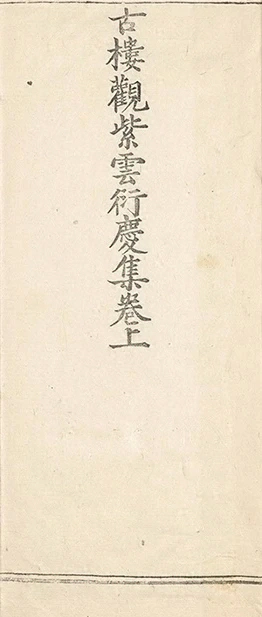 古樓觀紫雲衍慶集卷上